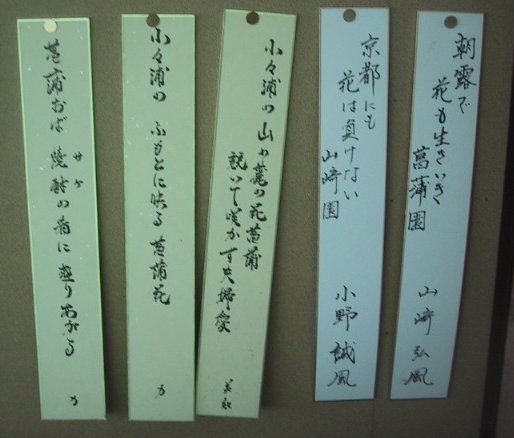 朝露で
花も生きいき
菖蒲園
山崎弘風
京都にも
花は負けない
山崎園
小野誠風
小々浦の山の麓の花菖蒲
説いて咲かす夫婦愛
小々浦の ふもとに映る 菖蒲花
力
サケ
菖蒲おば 焼酎の肴に 盛りあがる
力